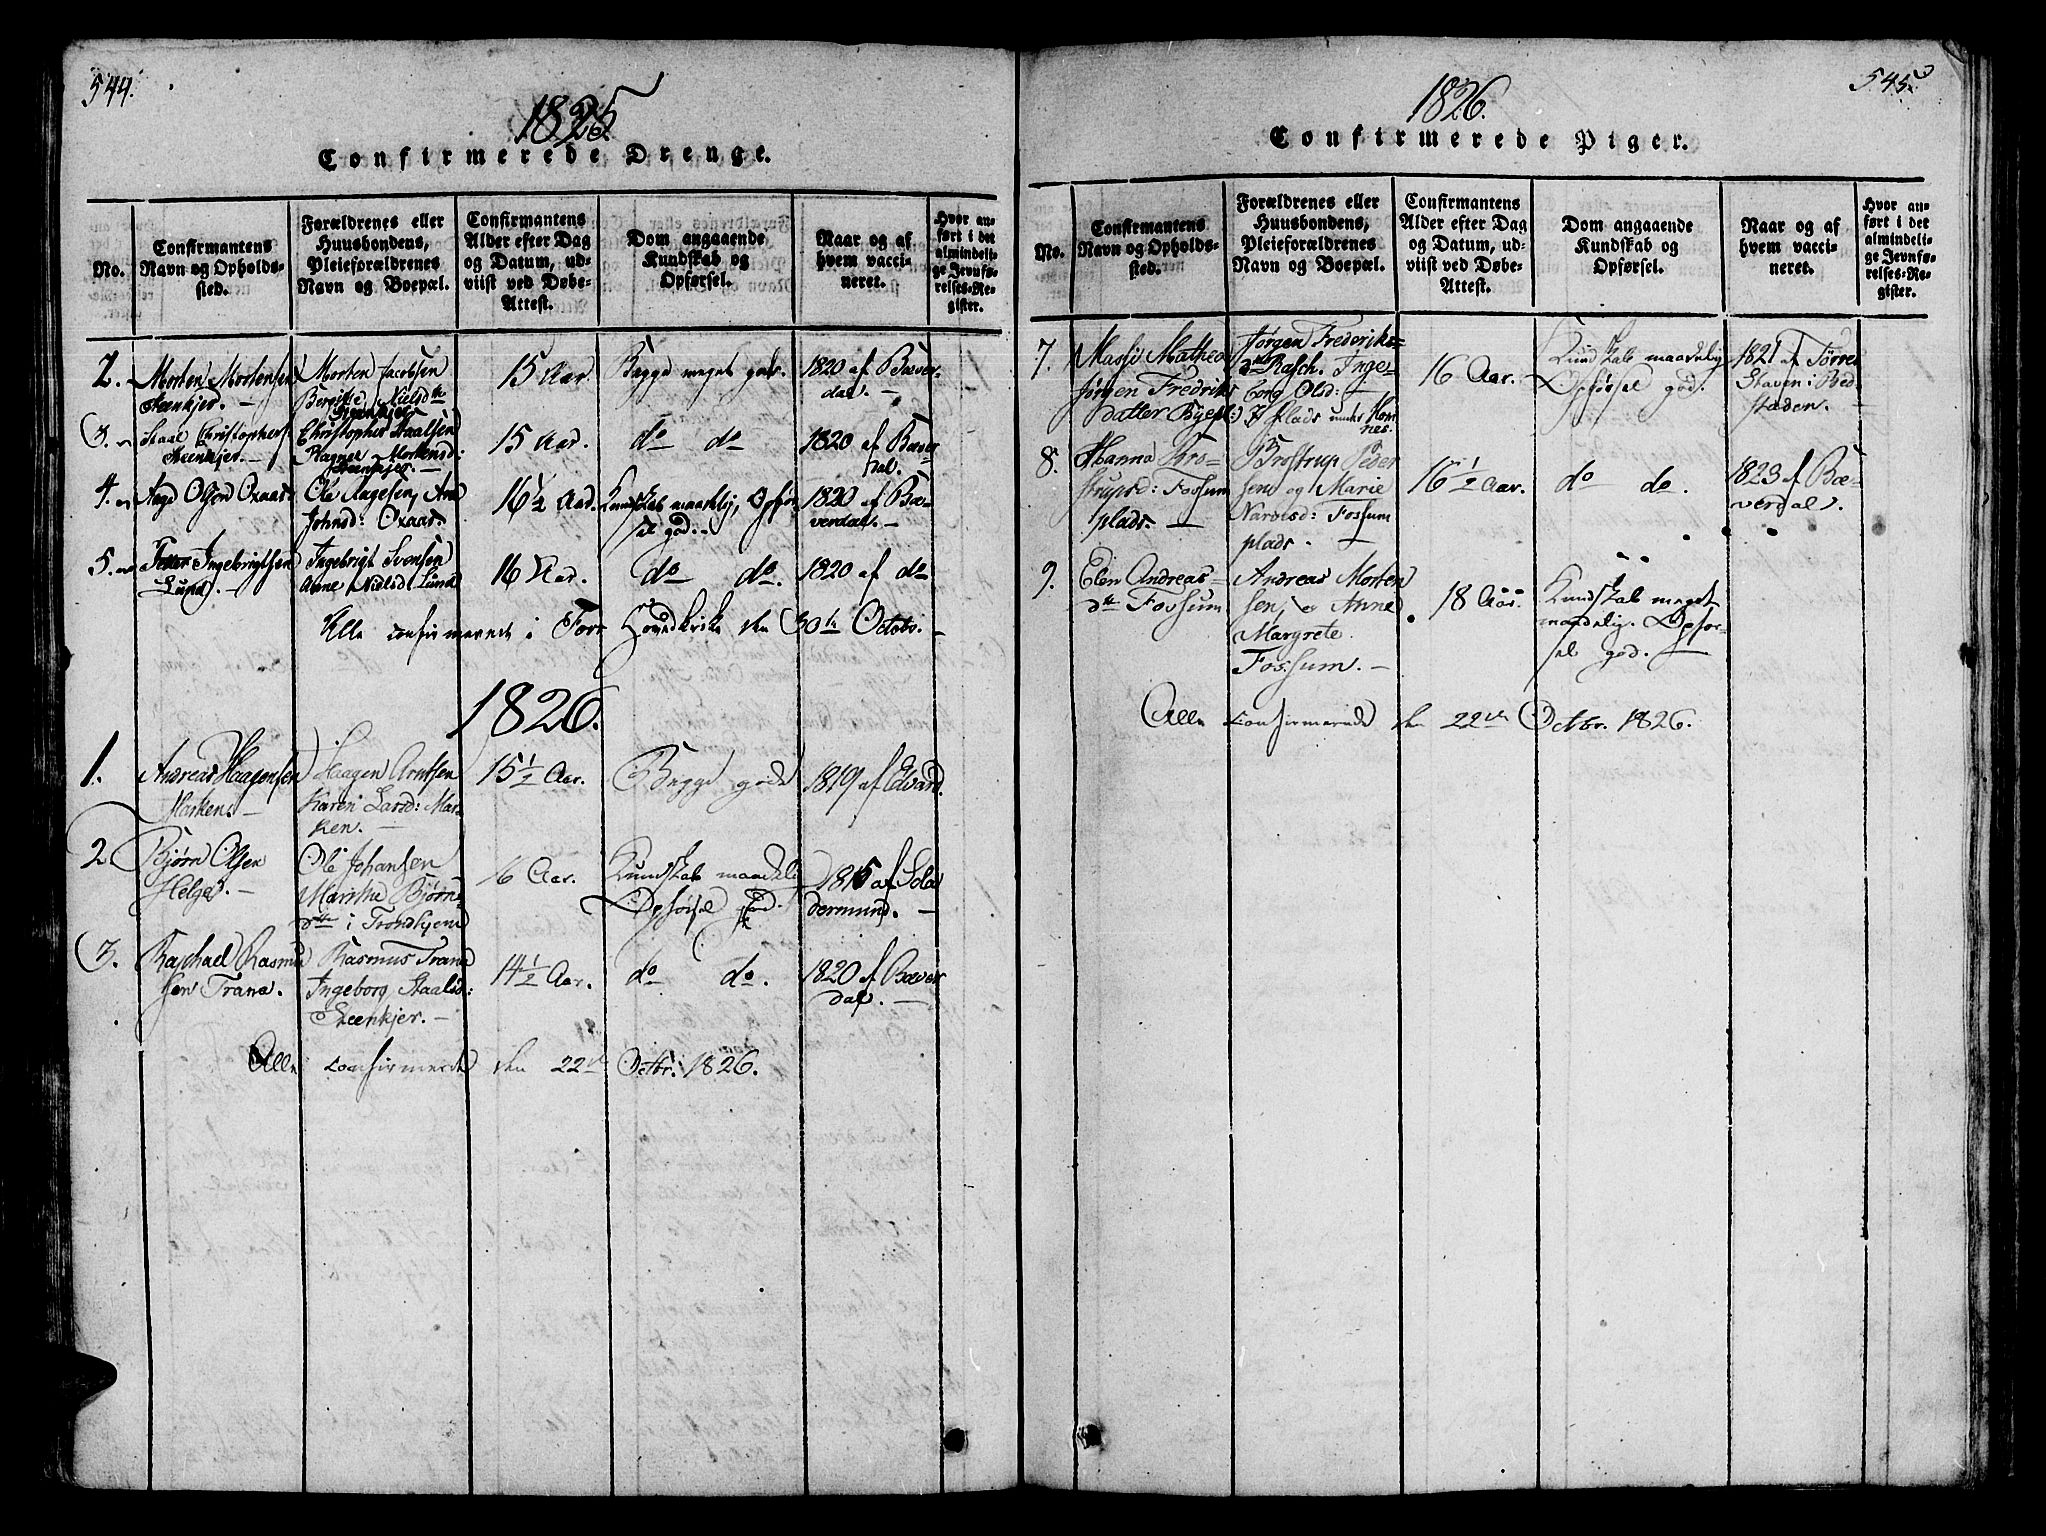 544.
1825
Confirmerede Drenge.
No.
Confirmantens
Navn og Opholds-
sted.
Forældrenes eller
Huusbondens,
Pleieforældrenes
Navn og Boepæl.
Confirmantens
Alder efter Dag
og Datum, ud-
viist ved Døbe-
Attest.
Dom angaaende
Kundskab og
Opførsel.
Naar og af
hvem vacci-
neret.
Hvor an-
ført i det
almindeli-
ge Jevnfø-
relses-Re-
gister.
2. Morten Mortensen
Steenkjer. —
Morten Jacobsen
Beritte Nielsdtr
Steenkjer
15 Aar.
Begge meget gode.
1820 af Bæver-
dal. —
3. Staal Christophers
Steenkjer. —
Christopher Staalsen
Magnet Mortensd:
Steenkjer. —
15 Aar.
do do
1820 af Bæver
dal.
4. Aage Olsen Oxaas
Ole Aagesen, Ane
Johnsd: Oxaas.
16½ Aar.
Kundskab maadelig, Opfør
sel god. —
1820 af Bæ-
verdal. —
5. Ingebrigtsen
Lund. —
Ingebrigt Svensen
Anne Nielsd Lund
16 Aar.
do do.
1820 af do
Alle confirmerede i Foss Hovedkirke den 30te Octobr. —
1826.
1. Andreas Haagensen
Marken. —
Haagen Arntsen
Karen Larsd: Mar-
ken. —
15½ Aar.
Begge gode
1819 af Edvard.
2 Bjørn Olsen
Helge. —
Ole Johansen
Marithe Bjørns
dtr i Trondhjem
16 Aar.
Kundskab maadeli
Opførsel god.
1815 af Sol
dermund. —
3. Raphael Rasmu
sen Trana.
Rasmus Trana
Ingeborg Staalsd:
Steenkjer. —
14½ Aar.
do do.
1820 af Bæver
dal. —
Alle confirmerede den 22de Octbr. 1826.
545.
1826.
Confirmerede Piger.
No.
Confirmantens
Navn og Opholds-
sted.
Forældrenes eller
Huusbondens,
Pleieforældrenes
Navn og Boepæl.
Confirmantens
Alder efter Dag
og Datum, ud-
viist ved Døbe-
Attest.
Dom angaaende
Kundskab og
Opførsel.
Naar og af
hvem vacci-
neret.
Hvor an-
ført i det
almindeli-
ge Jevnfø-
relses-Re-
gister.
7. Massi Mathea
Jørgen Fredriks
datter
Jørgen Frederik-
Rasch. Inge-
borg Olsd:
plads under
16 Aar.
Kundskab maadelig
Opførsel god.
1821 af Tørres
Staven i Bed-
staden.
8. Hanna Bro-
strupsd: Fossum
plads. —
Brostrup Peder
sen og Marie
Nardosd: Fossum
plads. —
16½ Aar.
do do.
1823 af Bæ-
verdal.
9. Elen Andreas-
dtr Fossum
Andreas Morten
sen, og Anne
Margrete
Fossum. —
18 Aar.
Kundskab meget
maadelig. Opfør-
sel god. —
Alle confirmerede den 22de Octbr. 1826.